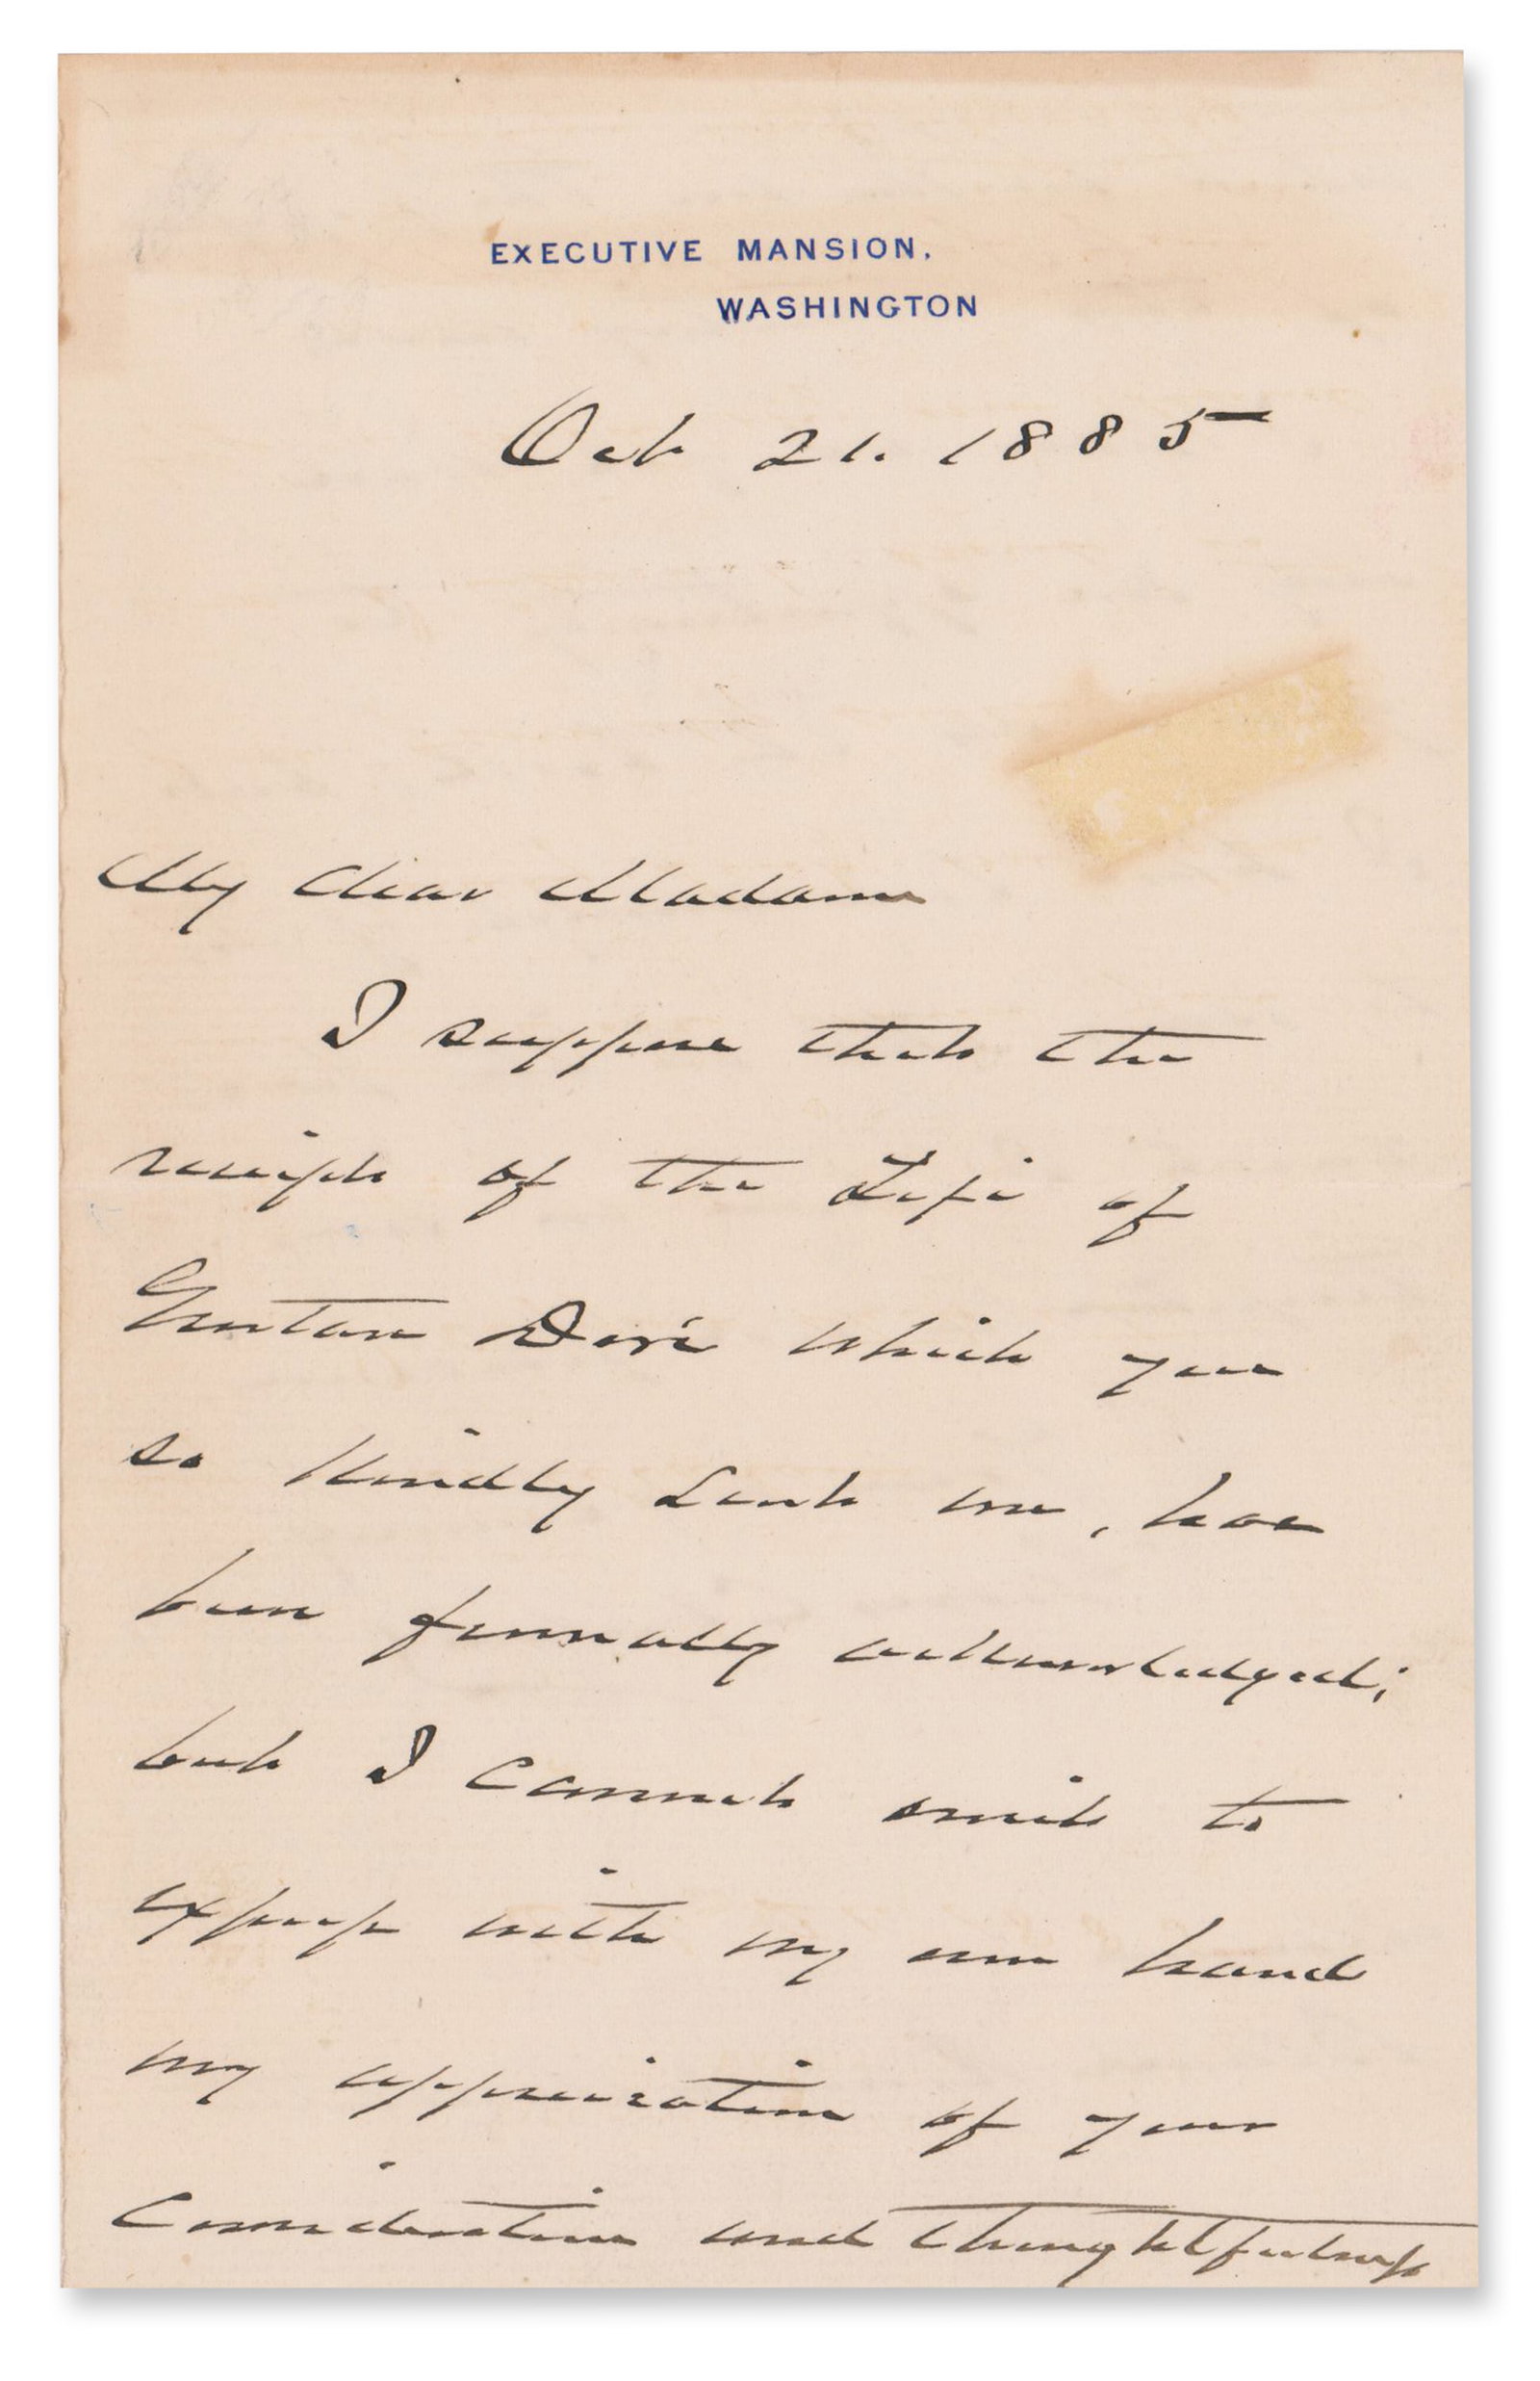 EXECUTIVE MANSION,
WASHINGTON
Oct 21. 1885
My dear Madam
I suppose that the
receipt of the Life of
Gustave Doré which you
so kindly sent me, has
been formally acknowledged;
but I cannot omit to
express with my own hand
my appreciation of your
consideration and thoughtfulness